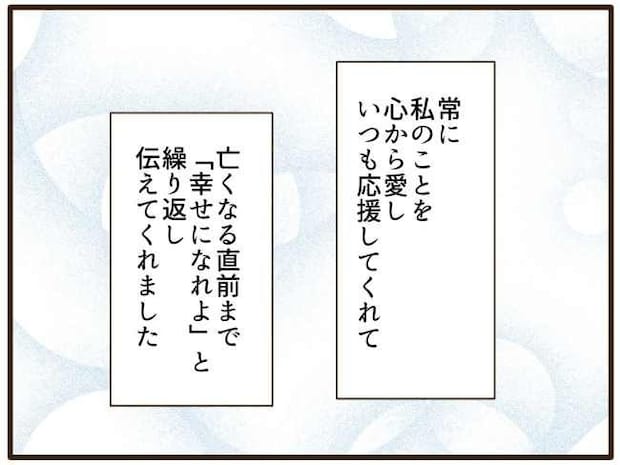 常に
私のことを
心から愛し
いつも応援してくれて
亡くなる直前まで
「幸せになれよ」と
繰り返し
伝えてくれました